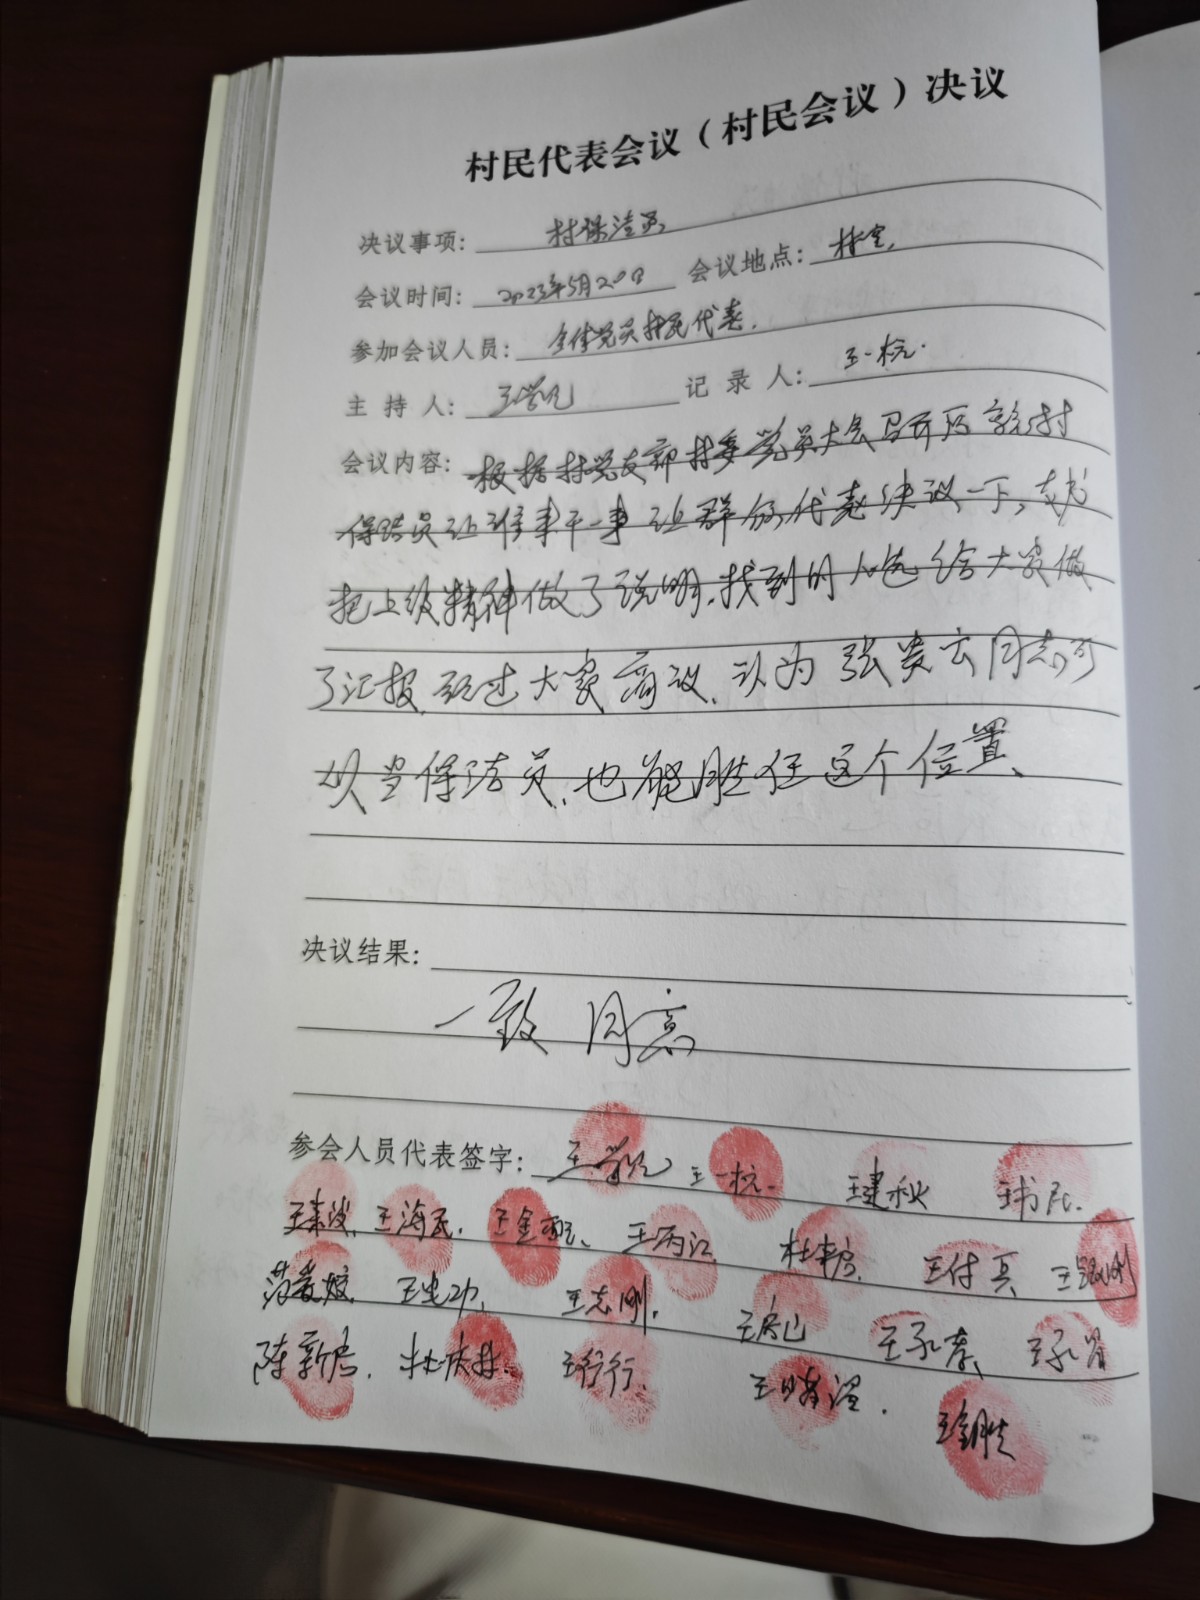 村民代表会议（村民会议）决议
决议事项：村保洁员
会议时间：2023年5月20日 会议地点：村室
参加会议人员：全体党员村民代表.
主持人：王学 记录人：王一杭.
会议内容：根据村党支部村委党员大会召开后 村
保洁员让谁来干一事 让群众代表决议一下，支书
把上级精神做了说明，找到的人选给大家做
了汇报，经过大家商议，认为张贵云同志可
以当保洁员，也能胜任这个位置、
决议结果：
一致同意
参会人员代表签字：王学 王一杭. 王建秋 王书民.
王海民. 王金 王丙江 杜 王付兵 王
王志刚. 王 王永 王永
陈新房. 杜庆林. 王行行. 王 . 王金胜